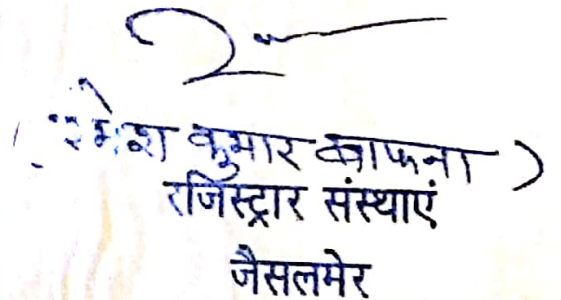 (रमेश कुमार बाफना)
रजिस्ट्रार संस्थाएं
जैसलमेर